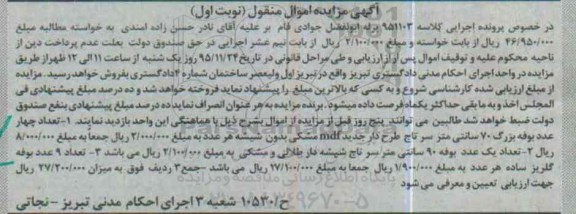 آگهی مزایده اموال منقول (نوبت اول)
در خصوص پرونده اجرایی کلاسه ۹۵۱۱۰۳ له ابوالفضل جوادی قام بر علیه آقای نادر حسن زاده اسندی به خواسته مطالبه مبلغ
۴۶/۹۵۰/۰۰۰ ریال از بابت خواسته و مبلغ ۲/۱۰۰/۰۰۰ ریال از بابت نیم عشر اجرایی در حق صندوق دولت بعلت عدم پرداخت دین از
ناحیه محکوم علیه و توقیف اموال پس از ارزیابی و طی مراحل قانونی در تاریخ ۹۵/۱۱/۲۴ روز یک شنبه از ساعت ۱۱ الی ۱۲ ظهر از طریق
مزایده در واحد اجرای احکام مدنی دادگستری تبریز واقع در تبریز اول ولیعصر ساختمان شماره ۲ دادگستری بفروش خواهد رسید. مزایده
از مبلغ ارزیابی شده کارشناسی شروع و به کسی که بالاترین مبلغ را پیشنهاد نماید فروخته خواهد شد و ده درصد مبلغ پیشنهادی فی
المجلس اخذ و به مابقی حداکثر یکماه فرصت داده میشود. برنده مزایده به هر عنوان انصراف نماید ده درصد مبلغ پیشنهادی بنفع صندوق
دولت ضبط خواهد شد طالبین می توانند پنج روز قبل از مزایده از اموال بشرح ذیل با هماهنگی این واحد بازدید نمایند. ۱- تعداد چهار
عدد بوفه بزرگ ۷۰ سانتی متر سر تاج طرح دار جدید mdf مشکی بدون شیشه هر عدد به مبلغ ۲/۰۰۰/۰۰۰ ریال جمعا به مبلغ ۸/۰۰۰/۰۰۰
ریال ۲- تعداد یک عدد بوفه ۹۰ سانتی متر سر تاج شیشه دار طلائی و مشکی به مبلغ ۲/۱۰۰/۰۰۰ ریال می باشد ۳- تعداد ۹ عدد بوفه
گلریز ساده هر عدد به مبلغ ۱/۹۰۰/۰۰۰ ریال جمعا به مبلغ ۱۷/۱۰۰/۰۰۰ ریال می باشد - جمع ۳ ردیف فوق به میزان ۲۷/۲۰۰/۰۰۰ ریال
جهت ارزیابی تعیین و معرفی می شود
ح/۱۰۵۳۰ شعبه ۳ اجرای احکام مدنی تبریز - نجاتی